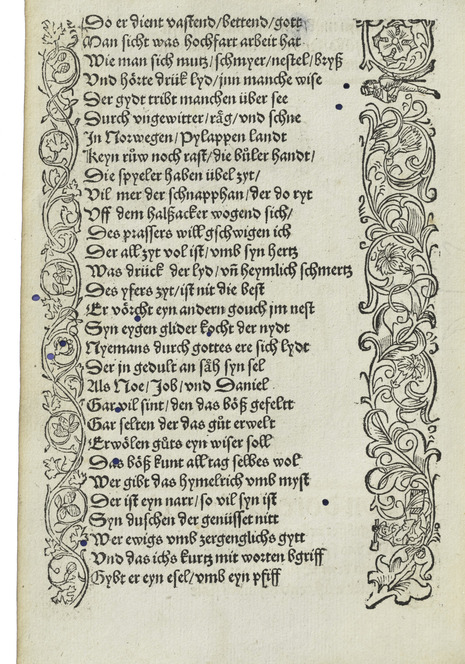 So er dient vastend/bettend/gott
Man sicht was hochfart arbeit hat
Wie man sich mutz/schmyer/nestel/bryß
Vnd hörte drük lyd/jnn manche wise
Der gydt tribt manchen über see
Durch vngewitter/råg/vnd schne
Jn Norwegen/Pylappen landt
Keyn růw noch rast/die bůler handt/
Die spyeler haben übel zyt/
Vil mer der schnapphan/der do ryt
Vff dem halßacker wogend sich/
Des prassers will gschwigen ich
Der all zyt vol ist/vmb syn hertz
Was drück der lyd/vñ heymlich schmertz
Des yfers zyt/ist nit die best
Er vörcht eyn andern gouch jm nest
Syn eygen glider kocht der nydt
Nyemans durch gottes ere sich lydt
Der jn gedult an såh syn sel
Als Noe/Job/vnd Daniel
Gar vil sint/den das böß gefeltt
Gar selten der das gůt erwelt
Erwölen gůts eyn wiser soll
Das böß kunt all tag selbes wol
Wer gibt das hymelrich vmb myst
Der ist eyn narr/so vil syn ist
Syn duschen der genüsset nitt
Wer ewigs vmb zergenglichs gytt
Vnd das ichs kurtz mit worten bgriff
Gybt er eyn esel/vmb eyn pfiff